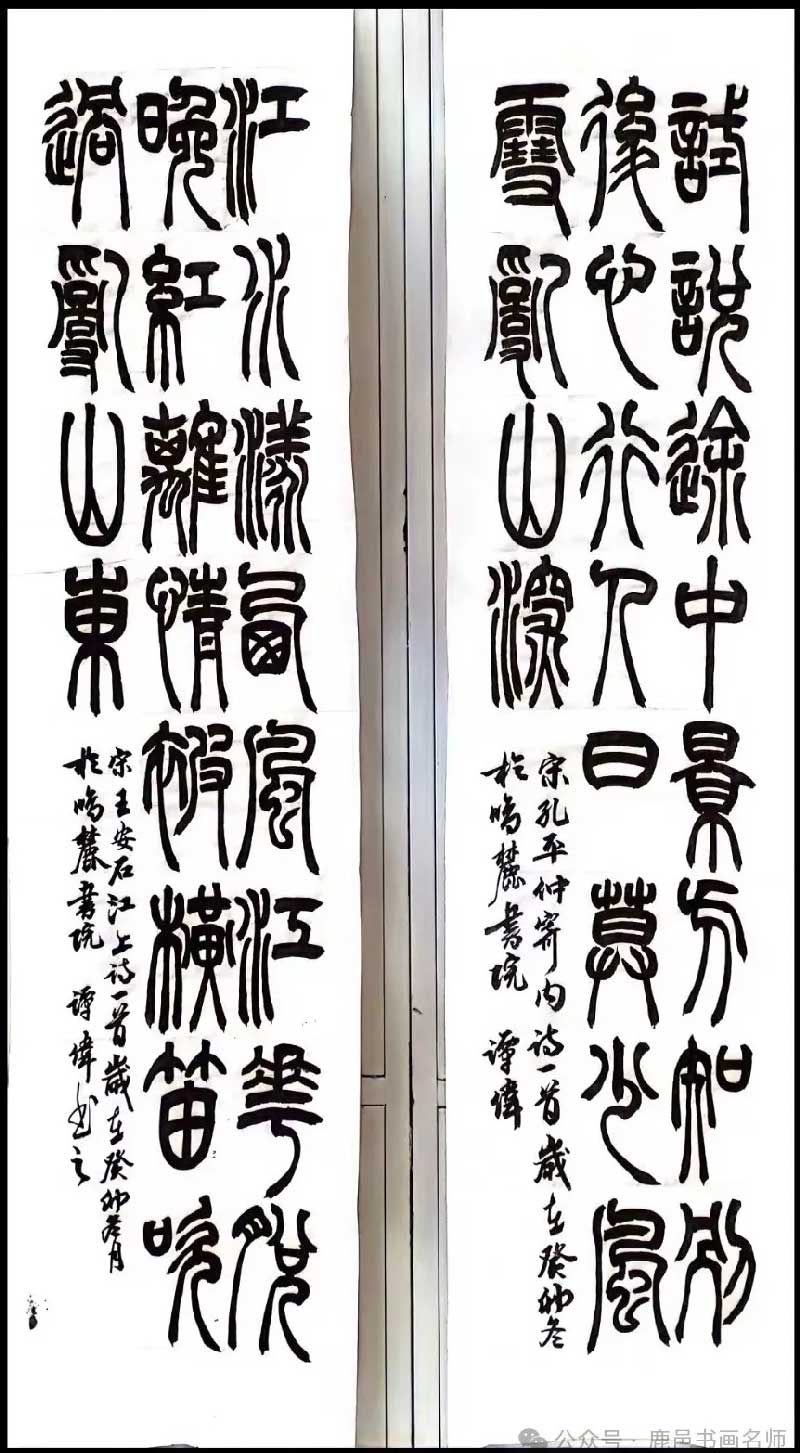 試說途中景方知别
後心行人日莫少風
雪亂山深
宋孔平仲寄内诗一首歲在癸卯冬
於鳴麓書院 譚偉
江水漾西風江花脫
晚紅離情被橫笛吹
過亂山東
宋王安石江上诗一首歲在癸卯冬月
於鳴麓書院 譚偉书之
公众号 · 鹿邑书画名师